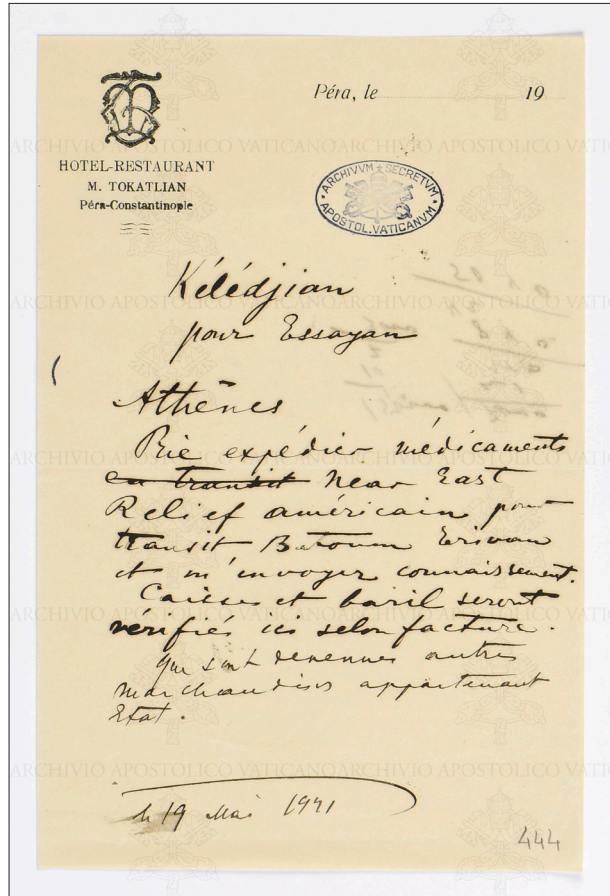 Péra, le 19
HOTEL-RESTAURANT
M. TOKATLIAN
Péra-Constantinople
ARCHIVVM SECRETVM
APOSTOL. VATICANVM
Kélédjian
pour Essayan
Athènes
Prie expédier médicaments
en transit Near East
Relief américain pour
transit Batoum Erivan
et m'envoyer connaissement.
Caisses et baril seront
vérifiés ici selon facture.
Que sont devenues autres
marchandises appartenant
Etat.
le 19 Mai 1921
444